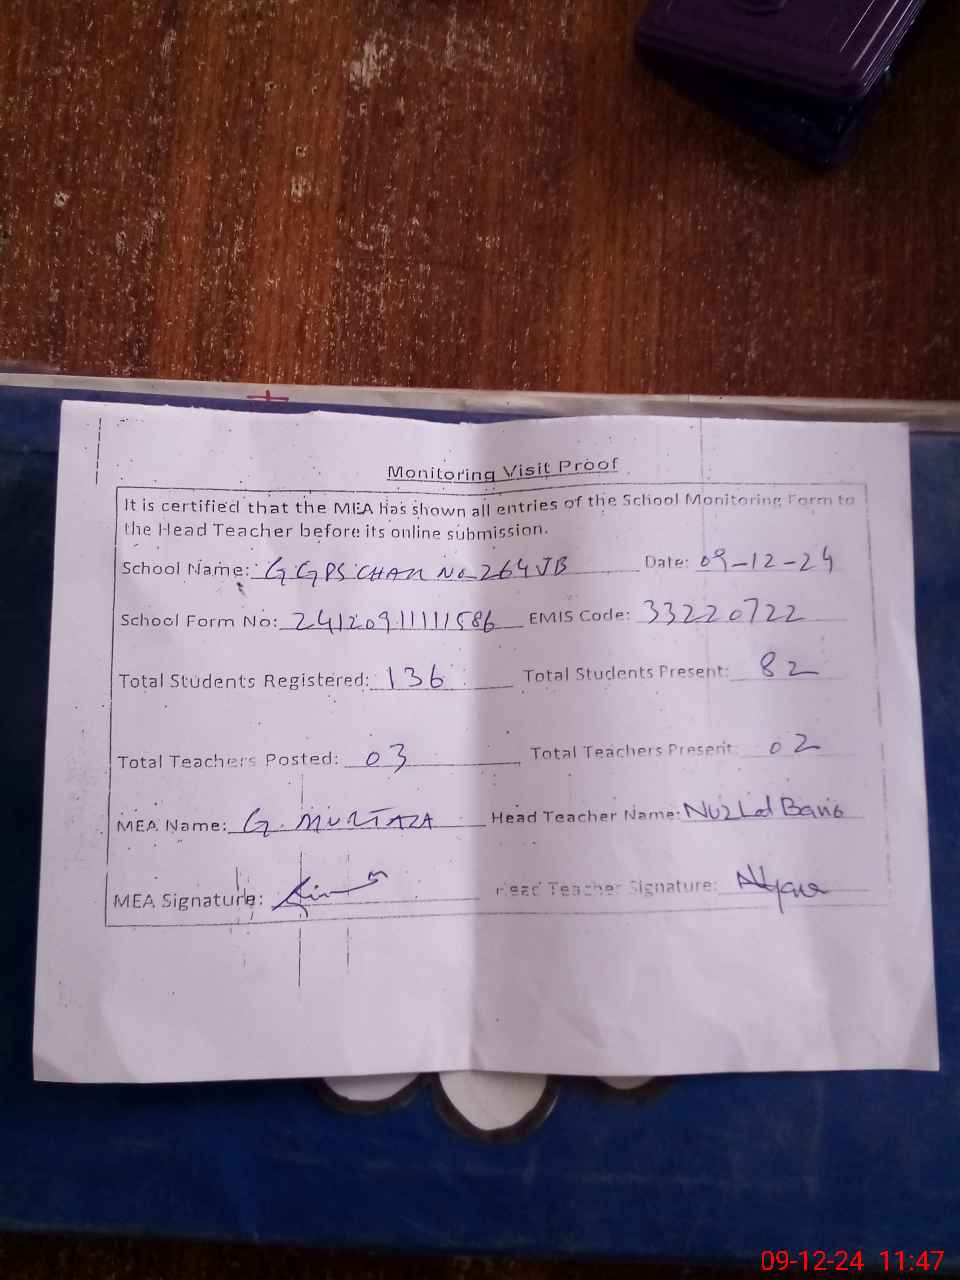 Monitoring Visit Proof
It is certified that the MEA has shown all entries of the School Monitoring Form to
the Head Teacher before its online submission.
School Name: GGPS CHAK No 264 JB Date: 09-12-24
School Form No: 24120911111586 EMIS Code: 33220722
Total Students Registered: 136 Total Students Present: 82
Total Teachers Posted: 03 Total Teachers Present: 02
MEA Name: G. MURTAZA Head Teacher Name: Bano
MEA Signature: Head Teacher Signature:
09-12-24 11:47